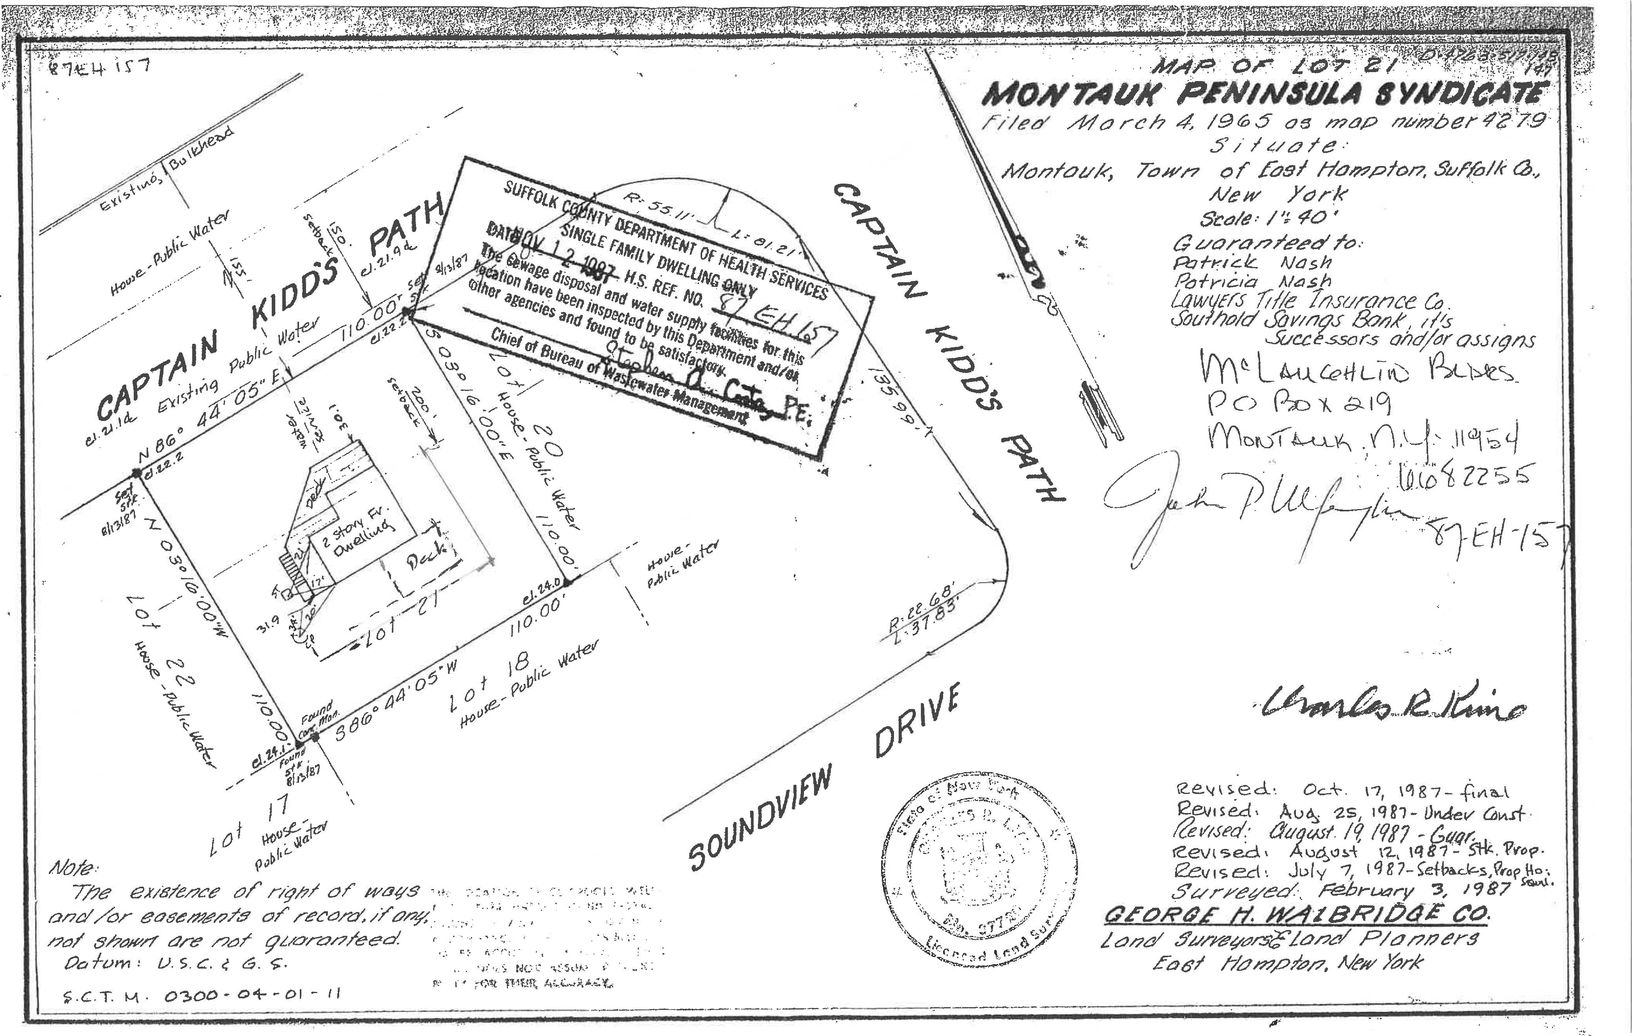 87EH 157
MAP OF LOT 21
MONTAUK PENINSULA SYNDICATE
Filed March 4, 1965 as map number 4279
Situate:
Montauk, Town of East Hampton, Suffolk Co.,
New York
Scale: 1"= 40'
Guaranteed to:
Patrick Nash
Patricia Nash
Lawyers Title Insurance Co.
Southold Savings Bank, it's
Successors and/or assigns
McLAUGHLIN BLDRS.
PO BOX 219
MONTAUK, N.Y. 11954
6682255
87-EH-157
Existing Bulkhead
House-Public Water
155'
150'
setback
CAPTAIN KIDD'S PATH
el. 21.9
el. 21.1
Existing Public Water
N 86° 44' 05" E
110.00'
el. 22.2
el. 22.2
Set
Stk.
8/13/87
Set
Stk.
8/13/87
SUFFOLK COUNTY DEPARTMENT OF HEALTH SERVICES
SINGLE FAMILY DWELLING ONLY
DATE NOV 12 1987 H.S. REF. NO. 87 EH 157
The sewage disposal and water supply facilities for this
location have been inspected by this Department and/or
other agencies and found to be satisfactory.
P.E.
Chief of Bureau of Wastewater Management
R: 55.11'
L: 81.21'
CAPTAIN KIDD'S PATH
135.99'
S 03° 16' 00" E
110.00'
Lot 20
House-Public Water
200'
setback
water
service
30.1
Deck
2 Story Fr.
Dwelling
Deck
31.9
Lot 21
el. 24.0
House-
Public Water
N 03° 16' 00" W
110.00'
Lot 22
House-Public Water
S 86° 44' 05" W
110.00'
Lot 18
House-Public Water
Found
Conc. Mon.
el. 24.1
Found
Stk.
8/13/87
Lot 17
House-
Public Water
R: 22.68'
L: 37.83'
SOUNDVIEW DRIVE
Charles R King
State of New York
Licensed Land Surveyor
Revised: Oct. 17, 1987-final
Revised: Aug 25, 1987-Under Const.
Revised: August 19, 1987 - Guar.
Revised: August 12, 1987- Stk. Prop.
Revised: July 7, 1987-Setbacks, Prop. Ho.
Surveyed: February 3, 1987
GEORGE H. WALBRIDGE CO.
Land Surveyors & Land Planners
East Hampton, New York
Note:
The existence of right of ways
and/or easements of record, if any,
not shown are not guaranteed.
Datum: U.S.C. & G.S.
S.C.T.M. 0300-04-01-11
FOR THEIR ACCURACY.